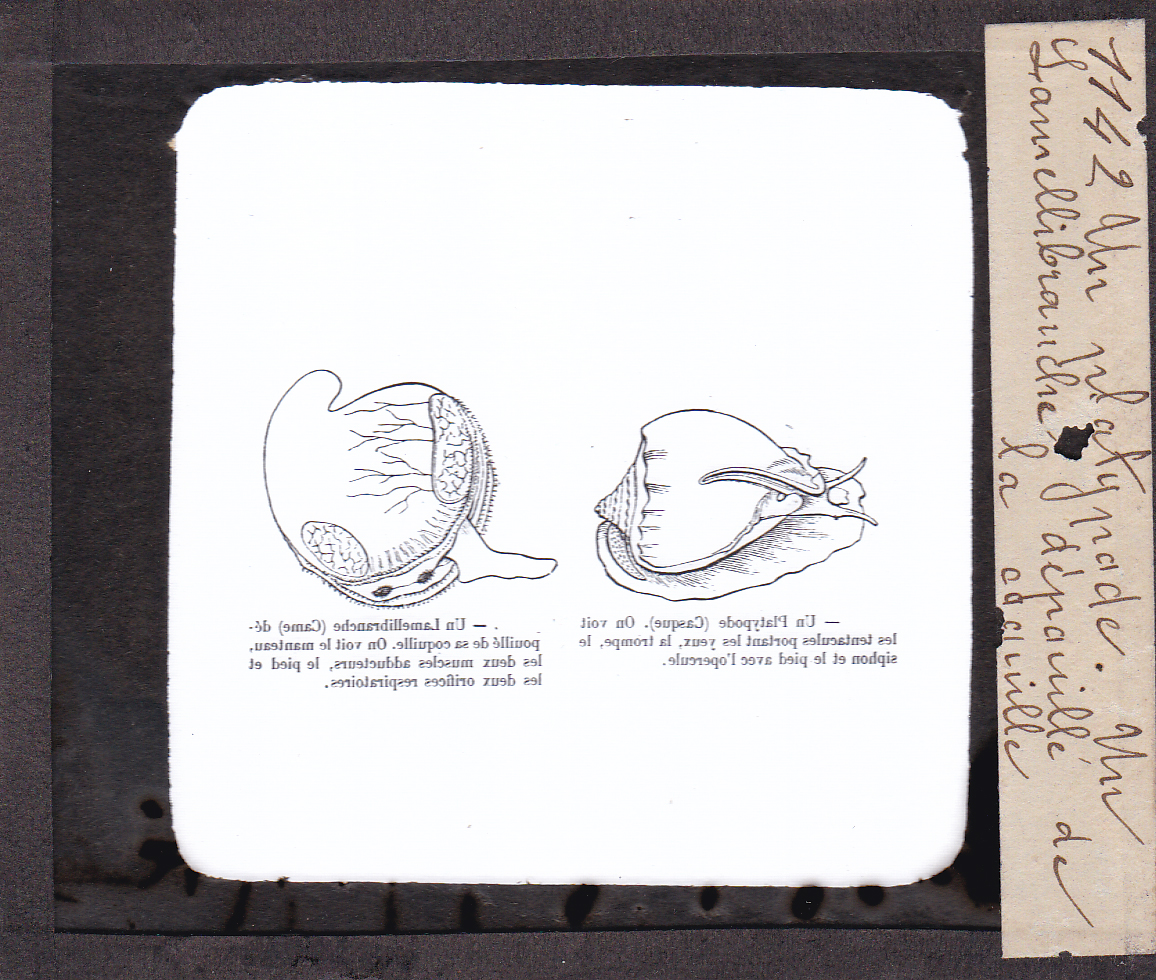 1142 Un platypode. Un
Lamellibranche dépouillé de
la coquille
. — Un Lamellibranche (Came) dé-
pouillé de sa coquille. On voit le manteau,
les deux muscles adducteurs, le pied et
les deux orifices respiratoires.
— Un Platypode (Casque). On voit
les tentacules portant les yeux, la trompe, le
siphon et le pied avec l'opercule.